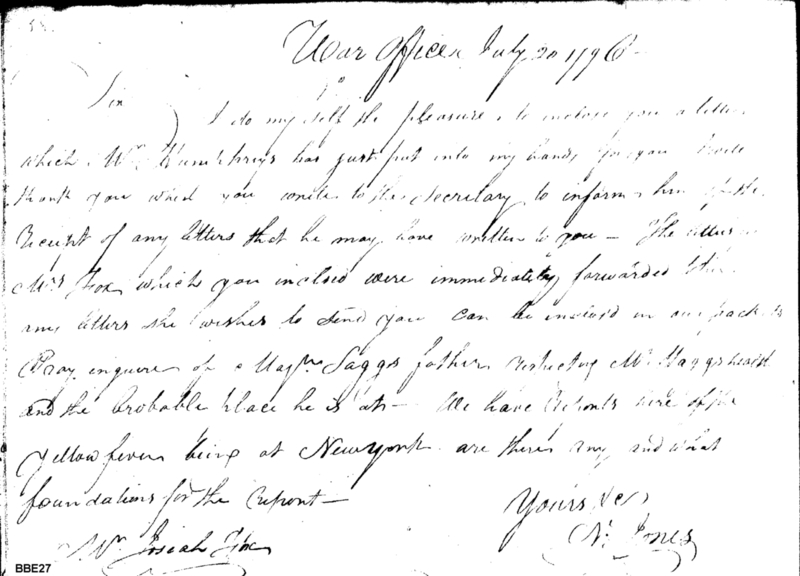 War Office July 20 1796
Sir
I do myself the pleasure to inclose you a letter
which Mr. Humphreys has just put into my hands for you I will
thank you when you write to the Secretary to inform him of the
Receipt of any letters that he may have written to you — The letters
Mrs Fox which you inclosed were immediately forwarded
any letters she wishes to send you can be inclosed in our packets
Pray enquire of father respecting Mr. Haggs health
and the Probable place he is at — We have Reports here of the
Yellow fever being at Newyork are there any and what
foundations for the report —
Yours &c
Jones
Mr. Josiah Fox
BBE27